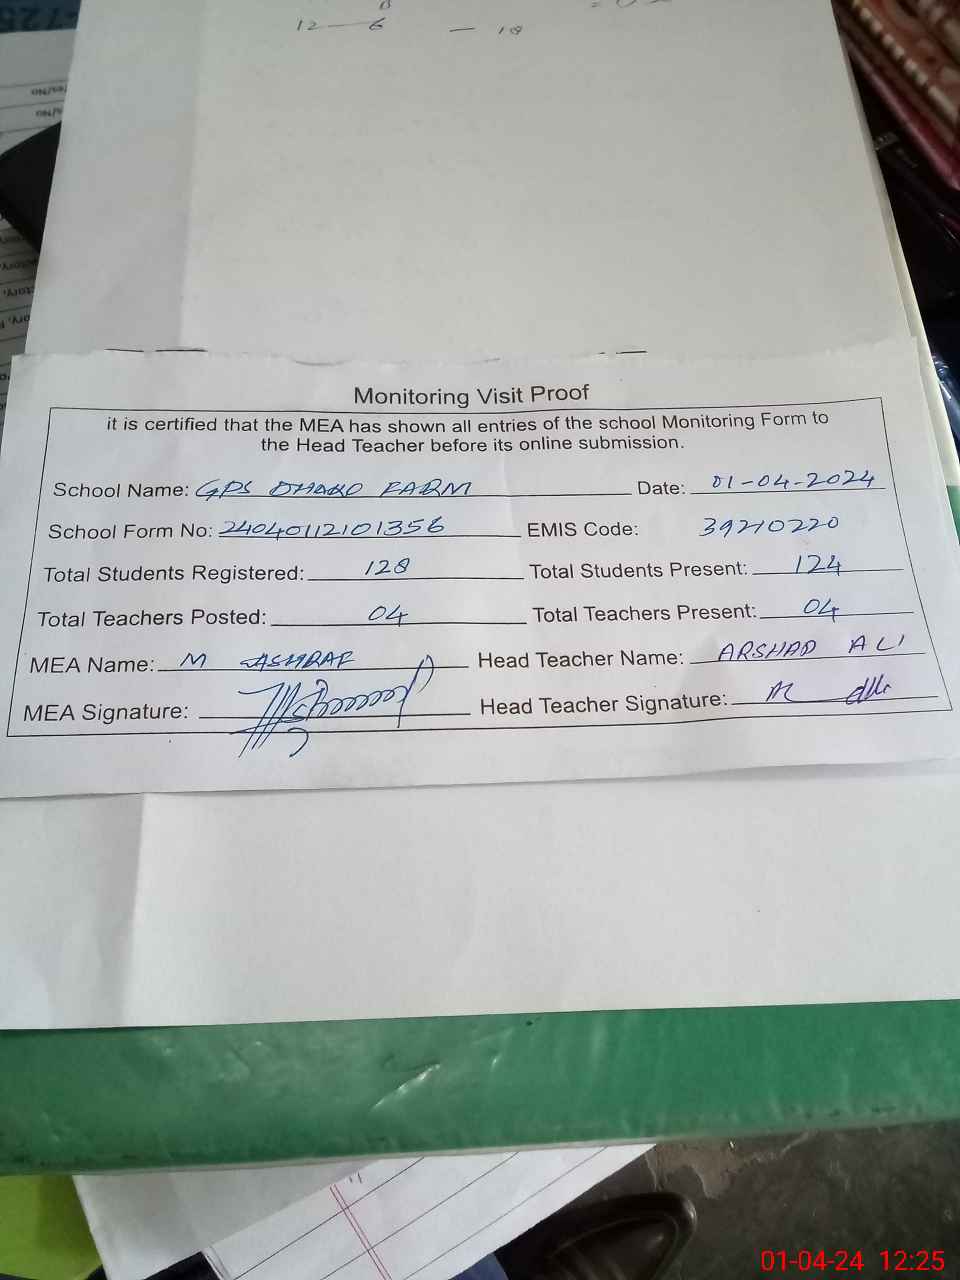 12 — 6 — 18
Monitoring Visit Proof
it is certified that the MEA has shown all entries of the school Monitoring Form to
the Head Teacher before its online submission.
School Name: GPS DHAKO FARM Date: 01-04-2024
School Form No: 24040112101356 EMIS Code: 39210220
Total Students Registered: 128 Total Students Present: 124
Total Teachers Posted: 04 Total Teachers Present: 04
MEA Name: M ASHRAF Head Teacher Name: ARSHAD ALI
MEA Signature: Head Teacher Signature:
01-04-24 12:25